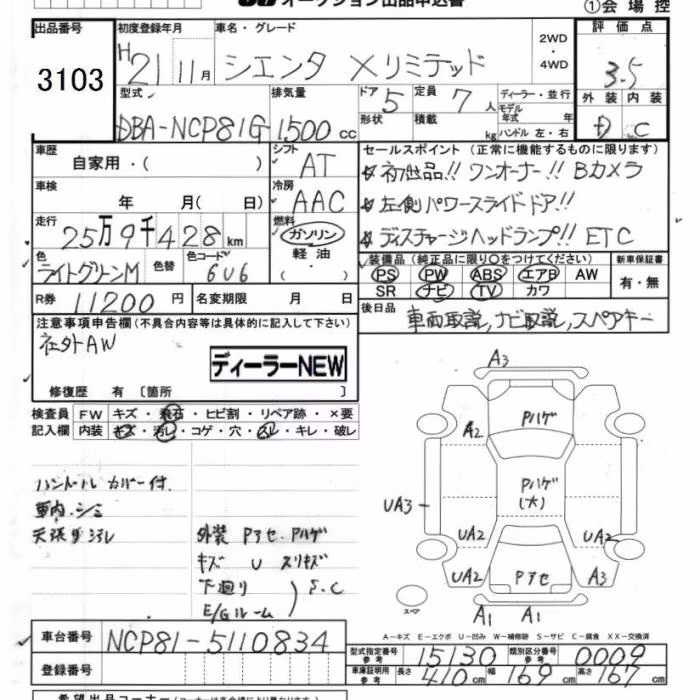 オークション出品申込書
①会場控
出品番号 初度登録年月 車名・グレード 評価点
3103 H21 11月 シエンタ Xリミテッド 2WD・4WD 3.5
型式 排気量 ドア 5 定員 7人 ディーラー・並行 外装 内装
DBA-NCP81G 1500cc 形状 積載 kg モデル年式 年 ハンドル 左・右 D C
車歴 シフト セールスポイント(正常に機能するものに限ります)
自家用・( ) AT ☆初出品!! ワンオーナー!! Bカメラ
車検 冷房 ☆左側パワースライドドア!!
年 月( 日) AAC ☆ディスチャージヘッドランプ!! ETC
走行 燃料
25万9千428km ガソリン
色 色替 色コード 軽油 装備品(純正品に限り○をつけてください) 新車保証書
ライトグリーンM 6U6 ・( ) PS PW ABS エアB AW 有・無
R券 11200円 名変期限 月 日 SR ナビ TV カワ
注意事項申告欄(不具合内容等は具体的に記入して下さい) 後日品 車両取説,ナビ取説,スペアキー
社外AW
ディーラーNEW
修復歴 有 〔箇所 〕
検査員 FW キズ・飛石・ヒビ割・リペア跡・×要
記入欄 内装 キズ・汚レ・コゲ・穴・スレ・キレ・破レ
ハンドル カバー付
車内・シミ
天張リヨゴレ
外装 Pアセ・Pハゲ
キズ U スリキズ
下廻り
E/Gルーム
S.C
A3
A2
Pハゲ
Pハゲ
(大)
UA3
UA2 UA2
UA2 Pアセ A3
スペア
A1 A1
A-キズ E-エクボ U-凹み W-補修跡 S-サビ C-腐食 XX-交換済
車台番号 NCP81-5110834
型式指定番号 参考 15130 類別区分番号 参考 0009
登録番号
車庫証明用 参考 長さ 410cm 幅 169cm 高さ 167cm
希望出品コーナー